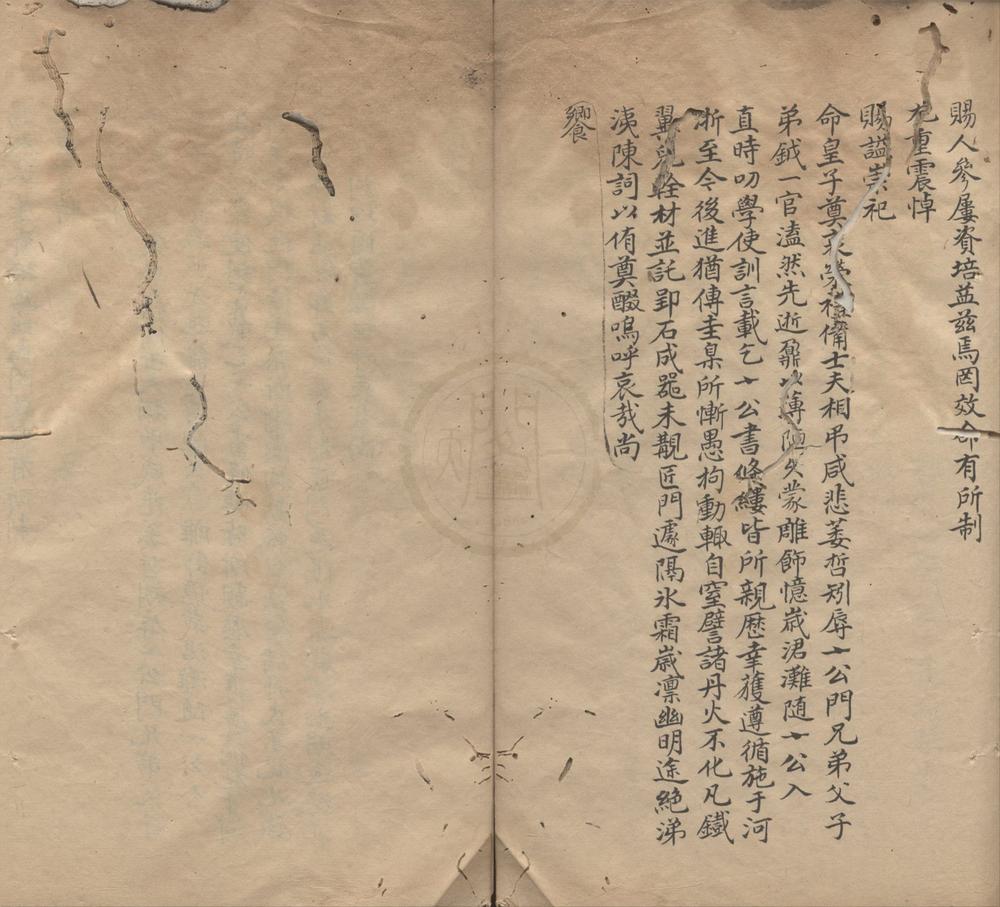 賜人參屢資培益茲焉罔效命有所制
九重震悼
賜諡崇祀
命皇子奠衣榮禮備士夫相弔咸悲萎哲矧辱十公門兄弟父子
弟鉞一官溘然先逝鼐以薄陋失蒙雕飾憶嵗涒灘随十公入
直時叨學使訓言載乞十公書條縷皆所親歷幸獲遵循施于河
浙至今後進猶傳圭臬所慚愚拘動輙自窒譬諸丹火不化凡鐡
翼兒輇材並託郢石成噐未覩匠門遽隔氷霜嵗凛幽明途絶涕
洟陳詞以侑奠醊嗚呼哀哉尚
饗